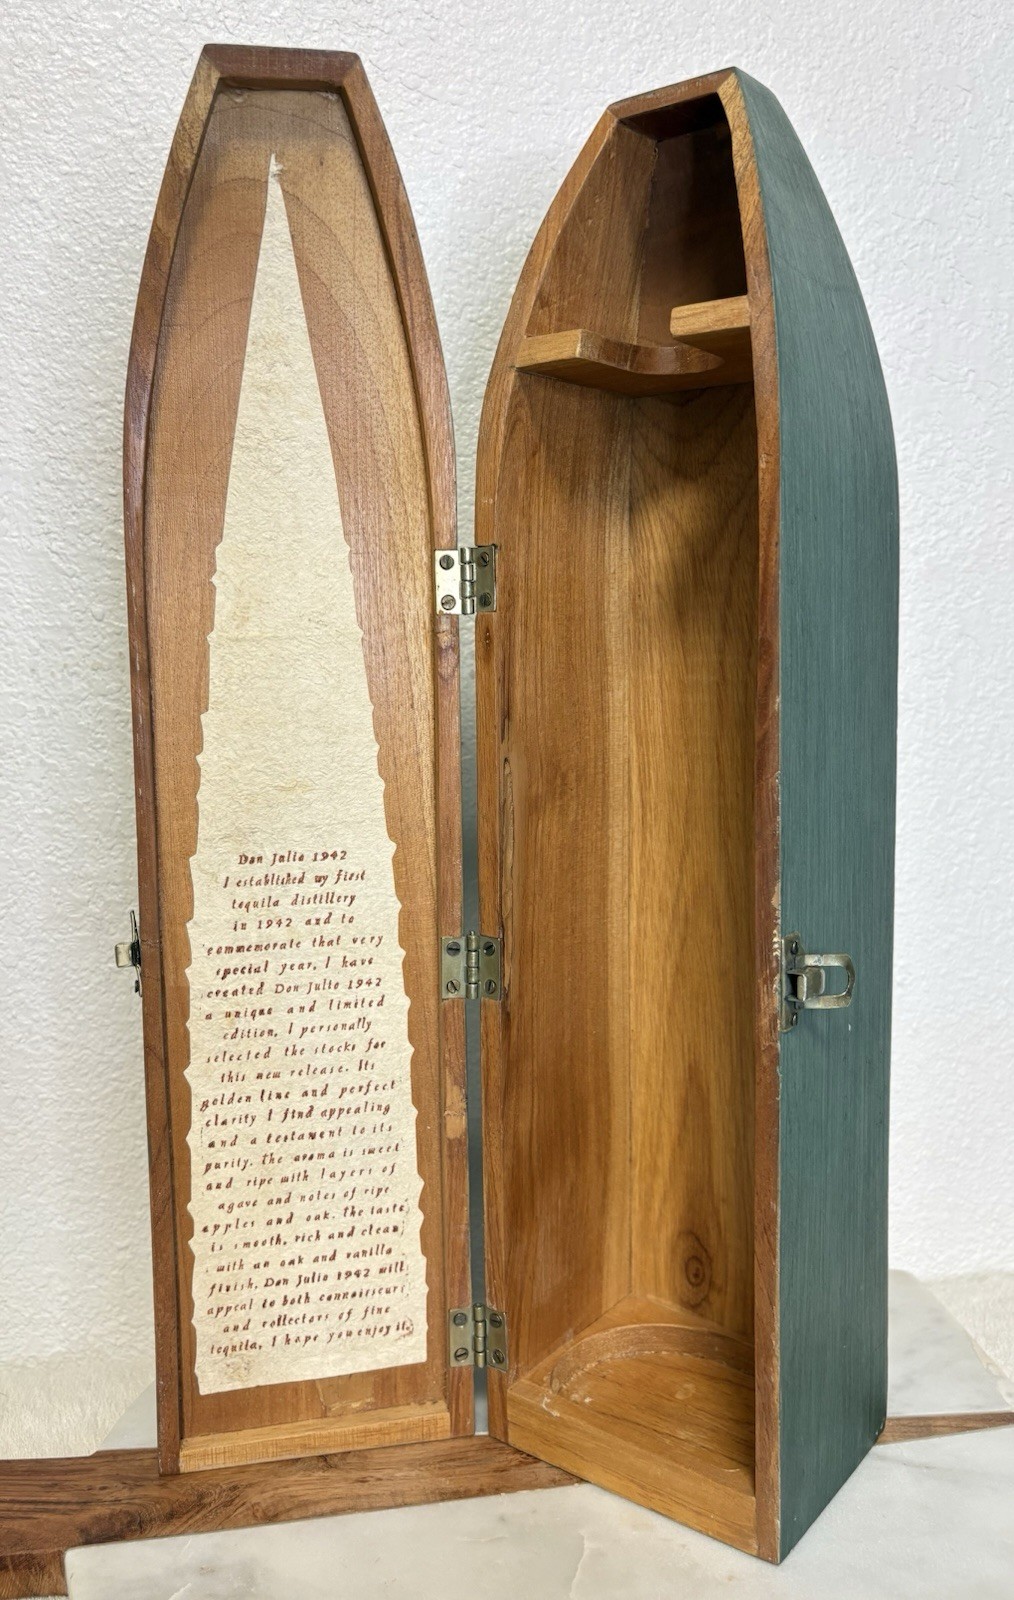 Don Julio 1942
I established my first
tequila distillery
in 1942 and to
commemorate that very
special year, I have
created Don Julio 1942
a unique and limited
edition, I personally
selected the stocks for
this new release. Its
golden line and perfect
clarity I find appealing
and a testament to its
purity. The aroma is sweet
and ripe with layers of
agave and notes of ripe
apples and oak. The taste
is smooth, rich and clean
with an oak and vanilla
finish. Don Julio 1942 will
appeal to both connoisseurs
and collectors of fine
tequila, I hope you enjoy it.